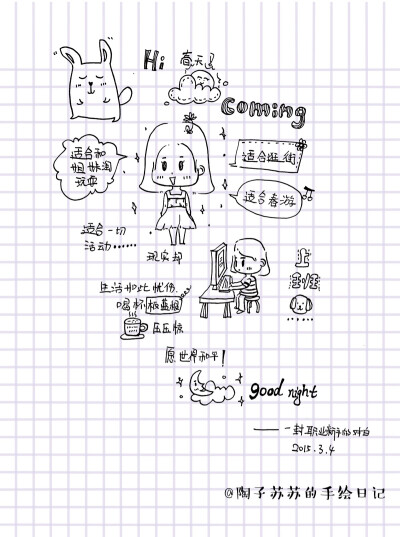 Hi 春天
coming
适合和
姐妹淘
玩耍
适合逛街
适合春游
适合一切
活动……
现实却
上
班
生活如此忧伤
喝杯板蓝根
压压惊
愿世界和平！
good night
2015.3.4
@陶子苏苏的手绘日记